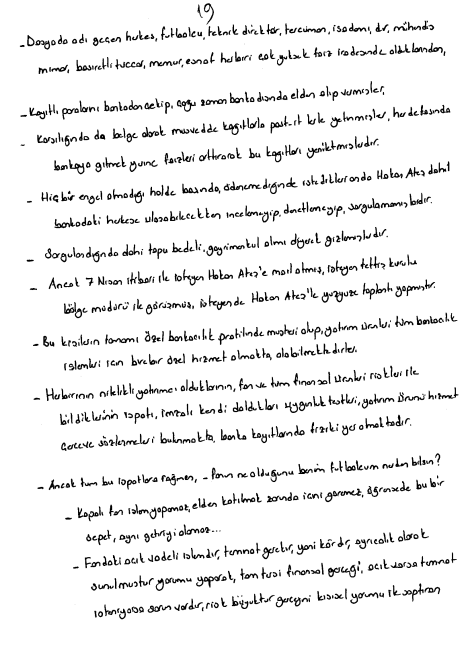 19
- Dosyada adı geçen herkes, futbolcu, teknik direktör, tercüman, işadamı, dr, mühendis
mimar, basiretli tüccar, memur, esnaf herbiri çok yüksek faiz iradesinde olduklarından,
- Kayıtlı paralarını bankadan çekip, çoğu zaman banka dışında elden alıp vermişler,
- Karşılığında da belge olarak müsvedde kağıtlarla post-it lerle yetinmişler, her defasında
bankaya gitmek yerine faizleri arttırarak bu kağıtları yeniletmişlerdir.
- Hiçbir engel olmadığı halde başında, ödenemediğinde istedikleri anda Hakan Ateş dahil
bankadaki herkese ulaşabilecekken incelemeyip, denetlemeyip, sorgulamamışlardır.
- Sorgulandığında dahi topu bedeli, gayrimenkul alımı diyerek gizlemişlerdir.
- Ancak 7 Nisan itibari ile isteyen Hakan Ateş'e mail atmış, isteyen teftiş kurulu
bölge müdürü ile görüşmüş, isteyende Hakan Ateş'le yüzyüze toplantı yapmıştır.
- Bu kişilerin tamamı özel bankacılık profilinde müşteri olup, yatırım ürünleri tüm bankacılık
işlemleri için birebir özel hizmet almakta, alabilmektedirler.
- Herbirinin nitelikli yatırımcı olduklarının, fon ve tüm finansal ürünleri riskleri ile
bildiklerinin ispatı, imzalı kendi doldukları uygunluk testleri, yatırım ürünü hizmet
çerçeve sözleşmeleri bulunmakta, banka kayıtlarında fiziki yer almaktadır.
- Ancak tüm bu ispatlara rağmen, - Fonun ne olduğunu benim futbolcum nerden bilsin?
- Kapalı fon işlem yapamaz, elden katılmak zorunda içini göremez, öğrensede bu bir
sepet, aynı getiriyi alamaz...
- Fondaki açık vadeli işlemdir, teminat gerektir, yani kördür, ayrıcalık olarak
sunulmuştur yorumu yaparak, tam tersi finansal gerçeği, açık varsa teminat
isteniyorsa sorun vardır, risk büyüktür gerçeğini kişisel yorumu ile saptıran